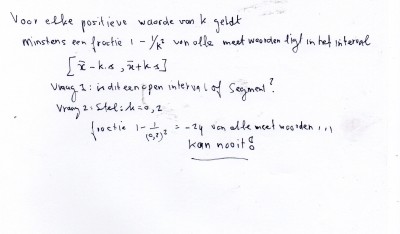 Voor elke positieve waarde van k geldt
minstens een fractie 1 - 1/k² van alle meetwaarden ligt in het interval
[x̄ - k.s , x̄ + k.s]
Vraag 1: is dit een open interval of segment?
Vraag 2: Stel: k = 0,2
fractie 1 - 1/(0,2)² = -24 van alle meetwaarden ...
kan nooit!